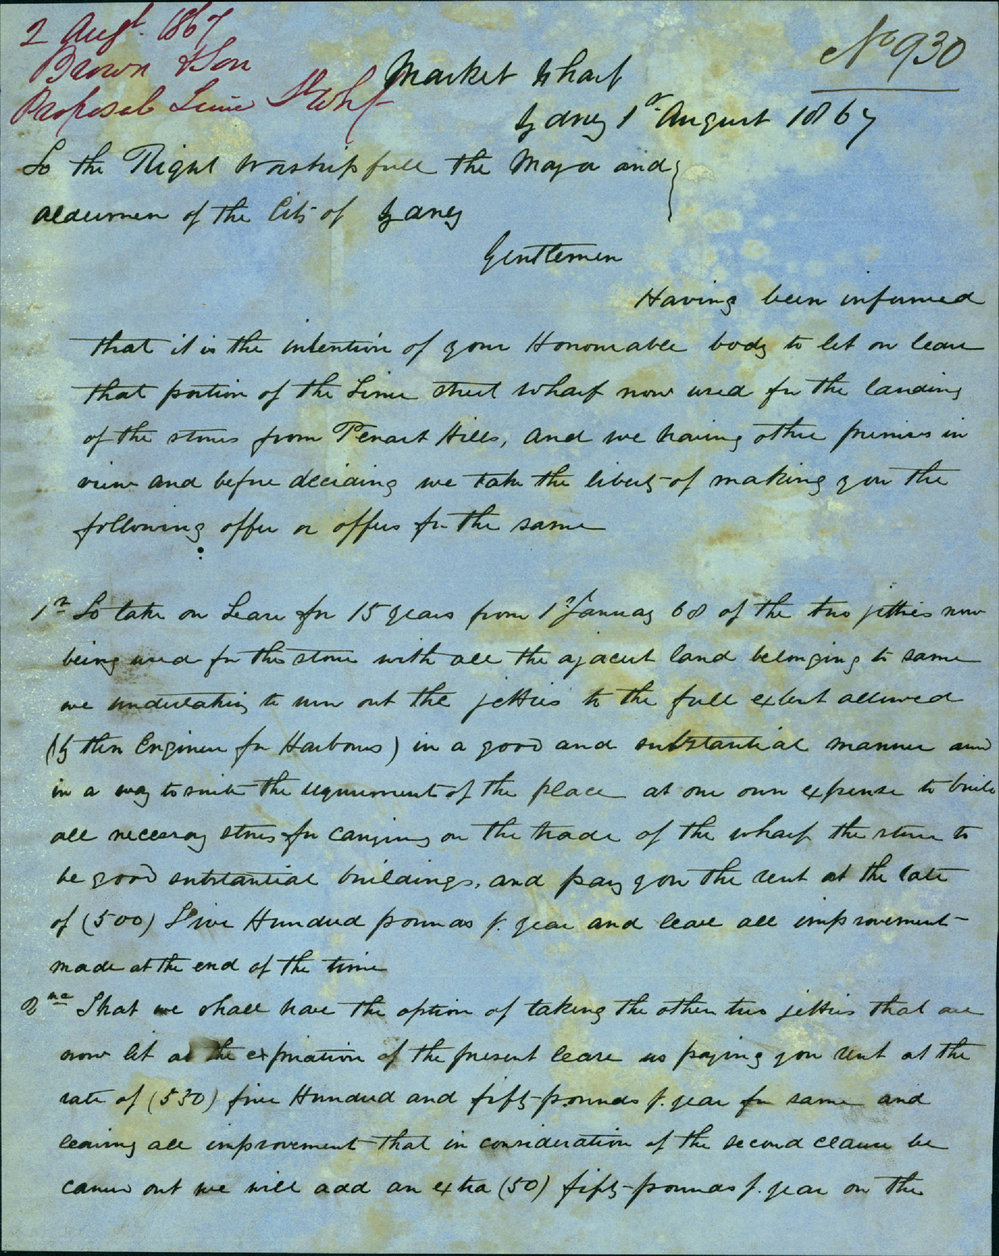 2 Augt. 1867
Brown & Son
Proposal Lime St Whf
No 930
Market Wharf
Sydney 1st August 1867
To the Right Worshipfull the Mayor and
Aldermen of the City of Sydney
Gentlemen
Having been informed
that it is the intention of your Honourable body to let on lease
that portion of the Lime Street Wharf now used for the landing
of the stones from Penant Hills, and we having other premises in
view and before deciding we take the liberty of making you the
following offer or offers for the same
1st To take on Lease for 15 years from 1st January 68 of the two jetties now
being used for the stone with all the ajacent land belonging to same
we undertaking to run out the jetties to the full extent allowed
(by then Engineer for Harbours) in a good and substantial manner and
in a way to suite the requirement of the place at our own expense to build
all necessary stores for carrying on the trade of the wharf the same to
be good substantial buildings, and pay you the rent at the rate
of (500) Five Hundred pounds p. year and leave all improvement
made at the end of the time
2nd That we shall have the option of taking the other two jetties that are
now let at the expiration of the present lease us paying you rent at the
rate of (550) five Hundred and fifty pounds p. year for same and
leaving all improvement that in consideration of the second clause be
carried out we will add an extra (50) fifty pounds p. year on the